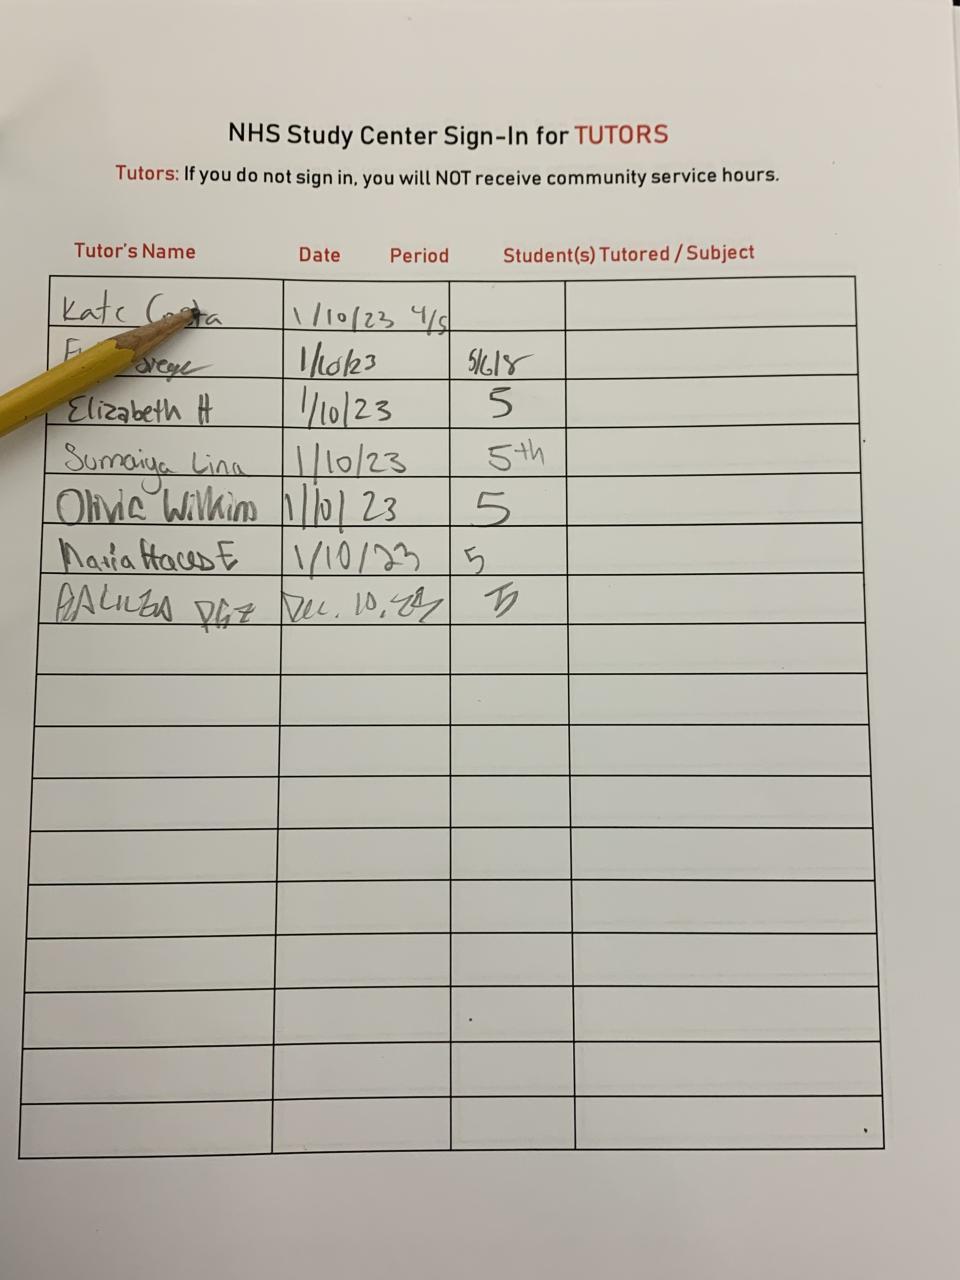 NHS Study Center Sign-In for TUTORS
Tutors: If you do not sign in, you will NOT receive community service hours.
Tutor's Name Date Period Student(s) Tutored / Subject
Kate 1/10/23 4/5
1/10/23 5/6/8
Elizabeth H 1/10/23 5
Sumaiya Lina 1/10/23 5th
Olivia Wilkins 1/10/23 5
Maria E 1/10/23 5
Dec. 10, 5